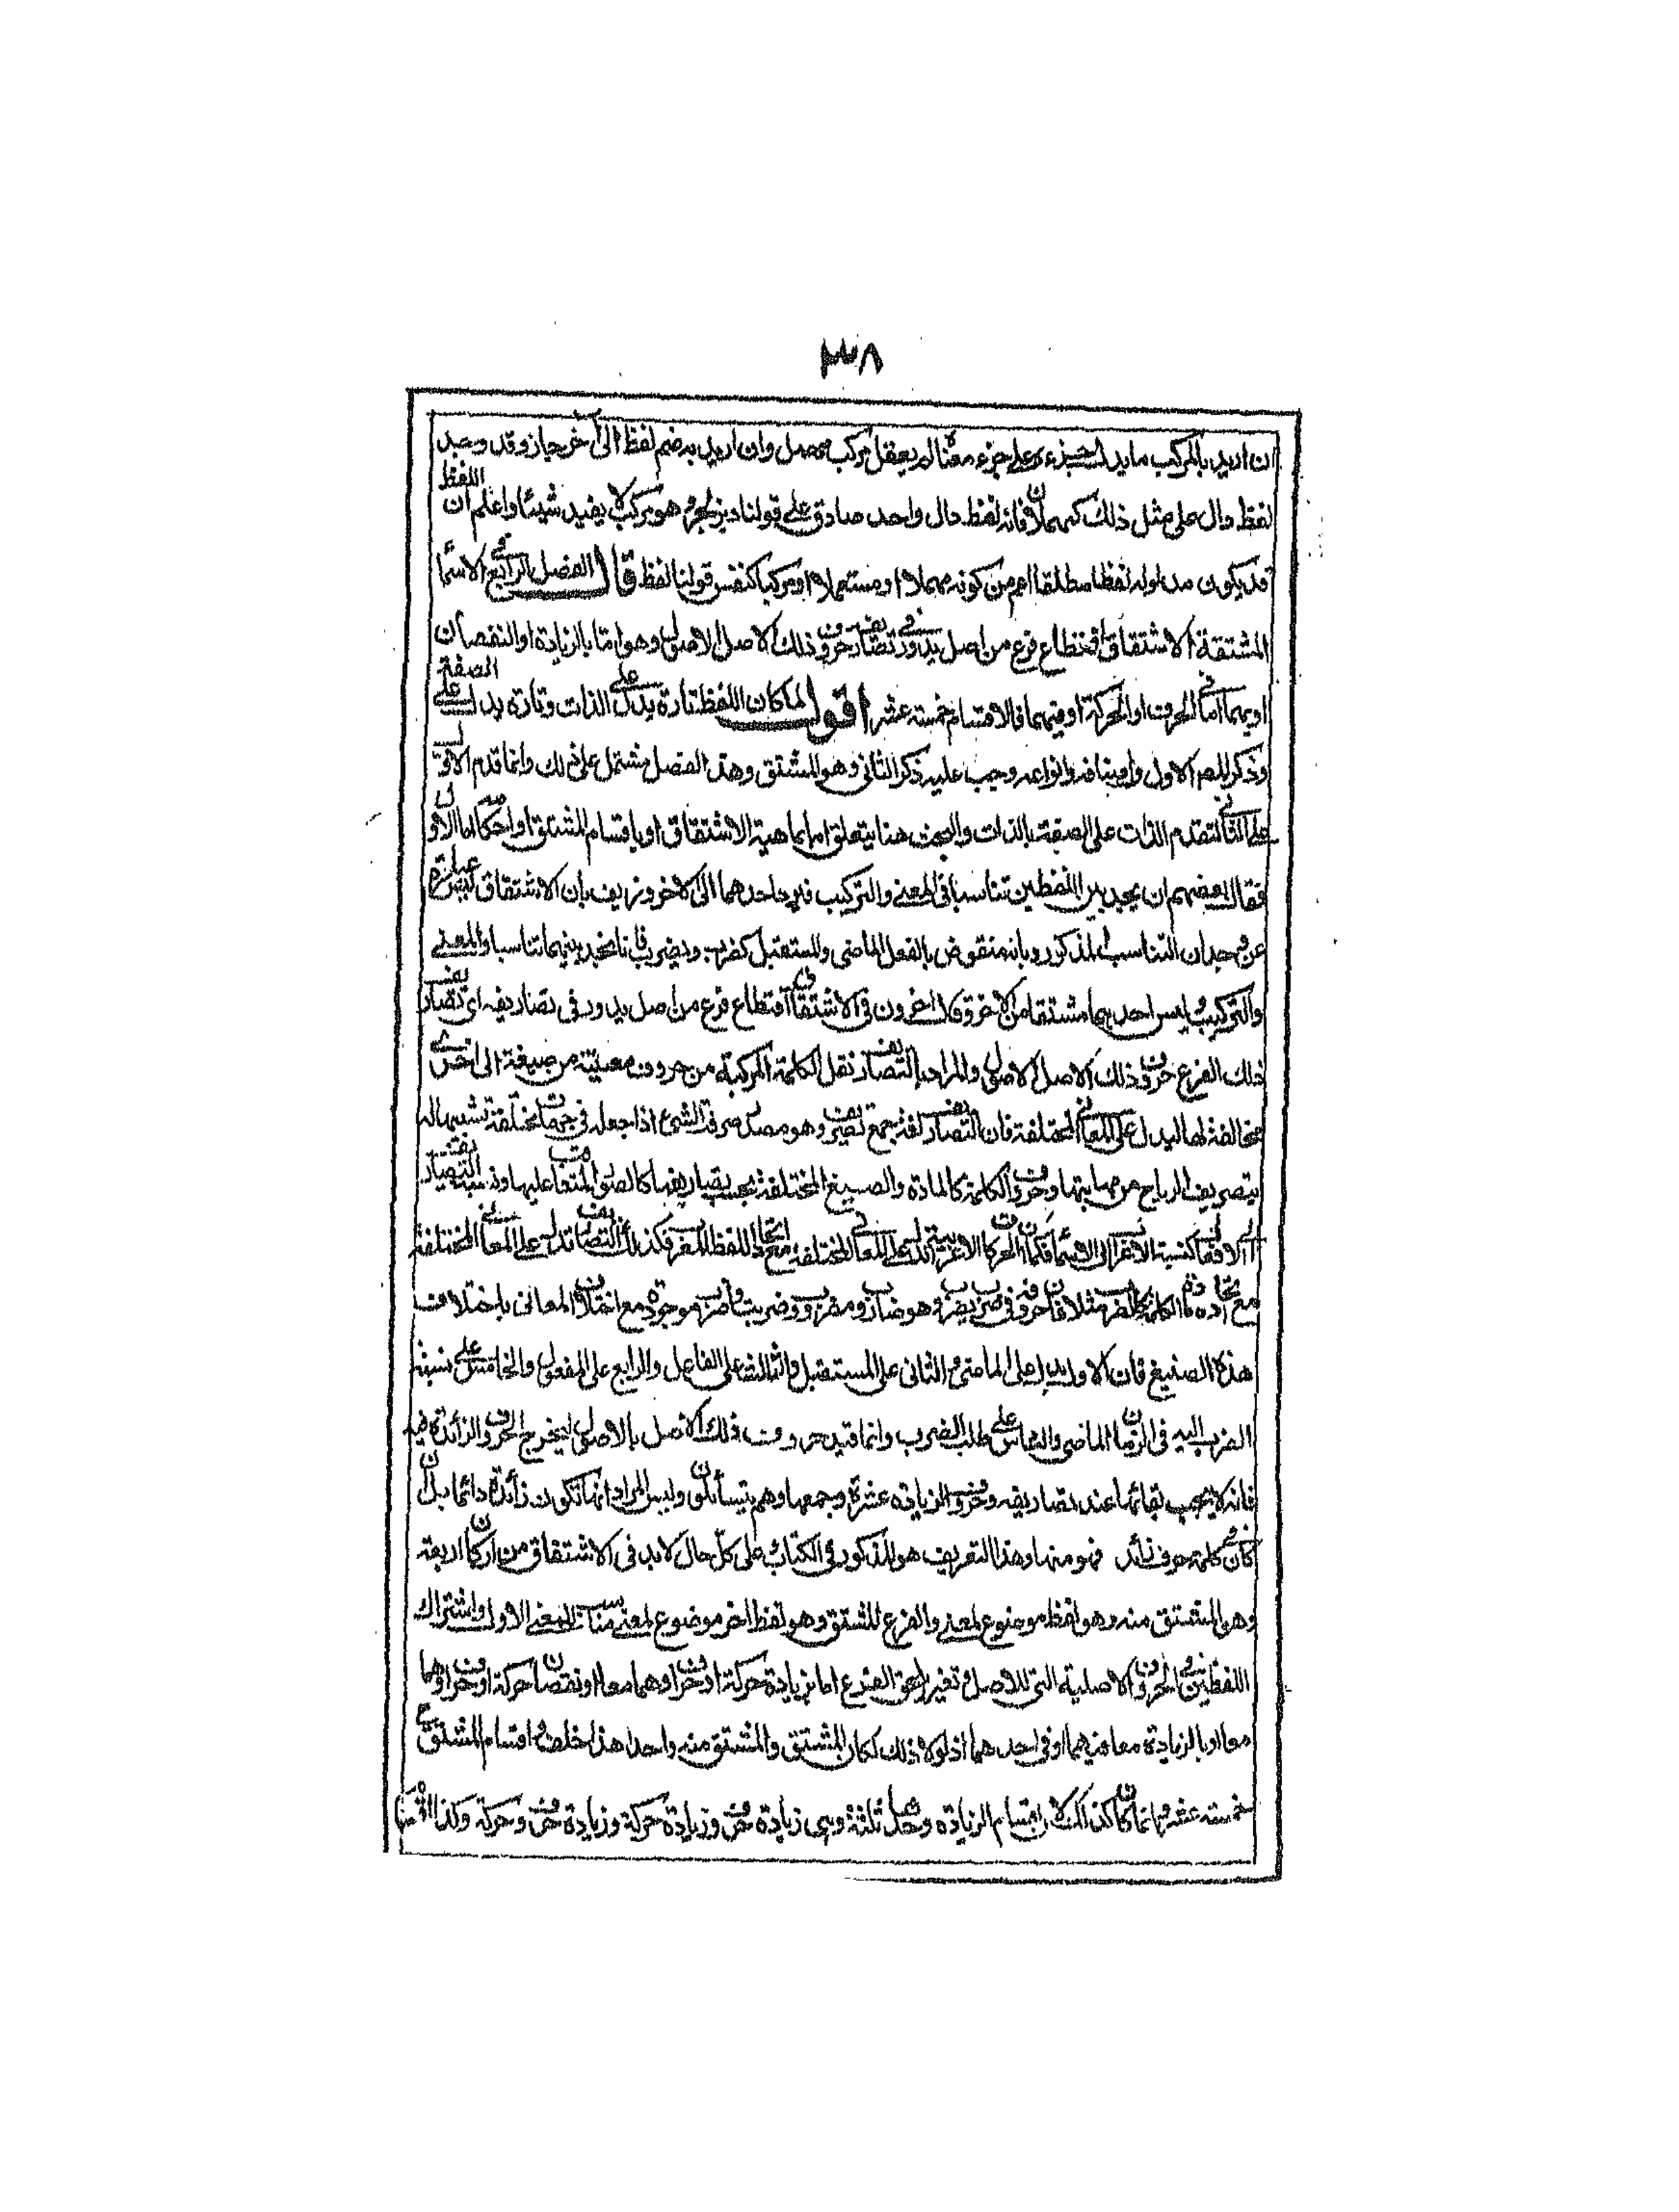 ٣٨
ان اريد بالمركب ما يدل جزءه على جزء معناه لم يعقل مركب مهمل وان اريد به ضم لفظ الى آخر جاز وقد وجد
لفظ دال على مثل ذلك كهملان فانه لفظ دال واحد صادق على قولنا ديز لجر وهو مركب لا يفيد شيئا واعلم ان اللفظ
قد يكون مدلوله لفظا مطلقا اعم من كونه مهملا او مستعملا او مركبا كنفس قولنا لفظ قال الفصل الرابع فى الاسماء
المشتقة الاشتقاق اقتطاع فرع من اصل يدور فى تصاريف حروف ذلك الاصل الاصلى وهو اما بالزيادة او النقصان
او بهما اما فى الحروف او الحركة او فيهما فالاقسام خمسة عشر اقول لما كان اللفظ تارة يدل على الذات وتارة يدل على الصفة
وذكر المص الاول واصنافه وانواعه وجب عليه ذكر الثانى وهو المشتق وهذا الفصل مشتمل على ذلك وانما قدم الاول
على الثانى لتقدم الذات على الصفة بالذات والبحث هنا يتعلق اما بماهية الاشتقاق او باقسام المشتق او احكامه اما الاول
فقال بعضهم ان يجد بين اللفظين تناسبا فى المعنى والتركيب فيرد احدهما الى الاخر وزيف بان الاشتقاق ليس عبارة
عن وجدان التناسب المذكور وبانه منقوض بالفعل الماضى والمستقبل كضرب ويضرب فانا نجد بينهما تناسبا والمعنى
والتركيب وليس احدهما مشتقا من الاخر وقال اخرون فى الاشتقاق اقتطاع فرع من اصل يدور فى تصاريفه اى تصاريف
ذلك الفرع حروف ذلك الاصل الاصلى والمراد بالتصاريف نقل الكلمة المركبة من حروف معينة من صيغة الى اخرى
مخالفة لها ليدل على المعانى المختلفة فان التصاريف لغة جمع تصريف وهو مصدر صرفت الشئ اذا جعله فى جهات مختلفة تشبيها له
بتصريف الرياح من مهابتها وحروف الكلمة كالمادة والصيغ المختلفة بحسب تصاريفها كالصور المتعاقبة عليها ونسبة التصاريف
الى الافعال كنسبة الاعراب الى الاسماء فكما ان الحركات الاعرابية تدل على المعانى المختلفة مع اتحاد اللفظ المعرب فكذلك التصاريف تدل على المعانى المختلفة
مع اتحاد مادة الكلمة كالضرب مثلا فان حروفه فى ضرب يضرب هو ضارب ومضروب وضربت واضرب موجودة مع اختلاف المعانى باختلاف
هذه الصيغ فان الاول يدل على الماضى والثانى على المستقبل والثالث على الفاعل والرابع على المفعول والخامس على نسبة
الضرب اليه فى الزمان الماضى والسادس على طلب الضرب وانما قيد حروف ذلك الاصل بالاصلى ليخرج الحروف الزائدة فيه
فانه لا يجب بقائها عند تصاريفه وحروف الزيادة عشرة وجمعها وهم يتسائلون وليس المراد انها تكون زائدة دائما بل ان
كان فى كلمة حرف زائد فهو منها وهذا التعريف هو المذكور فى الكتاب وعلى كل حال لابد فى الاشتقاق من اركان اربعة
وهو المشتق منه وهو لفظ موضوع لمعنى والفرع المشتق وهو لفظ اخر موضوع لمعنى مناسب للمعنى الاول واشتراك
اللفظين فى الحروف الاصلية التى للاصل وتغير يلحق الفرع اما بزيادة حركة او حرف او هما معا او نقصان حركة او حرف او هما
معا او بالزيادة معا فيهما او فى احدهما اذ لولا ذلك لكان المشتق والمشتق منه واحدا هذا خلف واقسام المشتق
خمسة عشر وانما كان كذلك لان اقسام الزيادة وحدها ثلثة وهى زيادة حرف وزيادة حركة وزيادة حرف وحركة وكذا